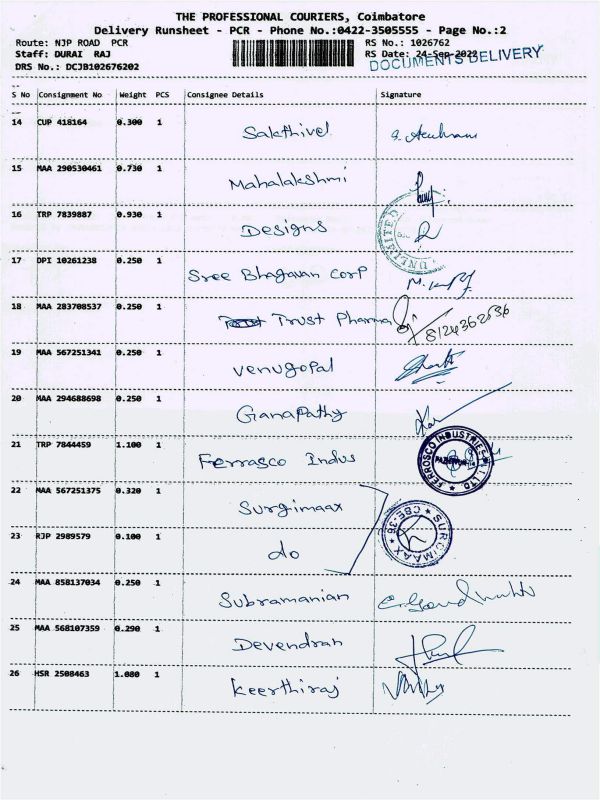 THE PROFESSIONAL COURIERS, Coimbatore
Delivery Runsheet - PCR - Phone No.:0422-3505555 - Page No.:2
Route: NJP ROAD PCR RS No.: 1026762
Staff: DURAI RAJ RS Date: 24-Sep-2022
DRS No.: DCJB102676202 DOCUMENTS DELIVERY
S No Consignment No Weight PCS Consignee Details Signature
14 CUP 418164 0.300 1 Sakthivel
15 MAA 290530461 0.730 1 Mahalakshmi
16 TRP 7839887 0.930 1 Designs
UNLIMITED
17 DPI 10261238 0.250 1 Sree Bhagavan Corp
18 MAA 283708537 0.250 1 Trust Pharma
19 MAA 567251341 0.250 1 Venugopal
20 MAA 294688698 0.250 1 Ganapathy
21 TRP 7844459 1.100 1 Ferrasco Indus
FERROSCO INDUSTRIES LTD
22 MAA 567251375 0.320 1 Surgimaax
SURGIMAAX CBE-36
23 RJP 2989579 0.100 1 do
24 MAA 858137034 0.250 1 Subramanian
25 MAA 568107359 0.290 1 Devendran
26 HSR 2508463 1.080 1 Keerthiraj